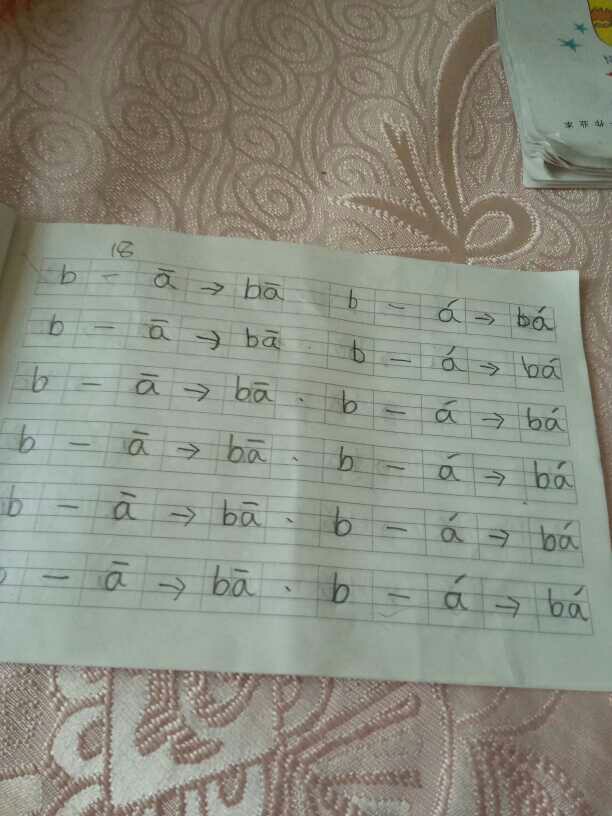 作业本
18
b - ā → bā b - á → bá
b - ā → bā · b - á → bá
b - ā → bā · b - á → bá
b - ā → bā · b - á → bá
b - ā → bā · b - á → bá
b - ā → bā · b - á → bá